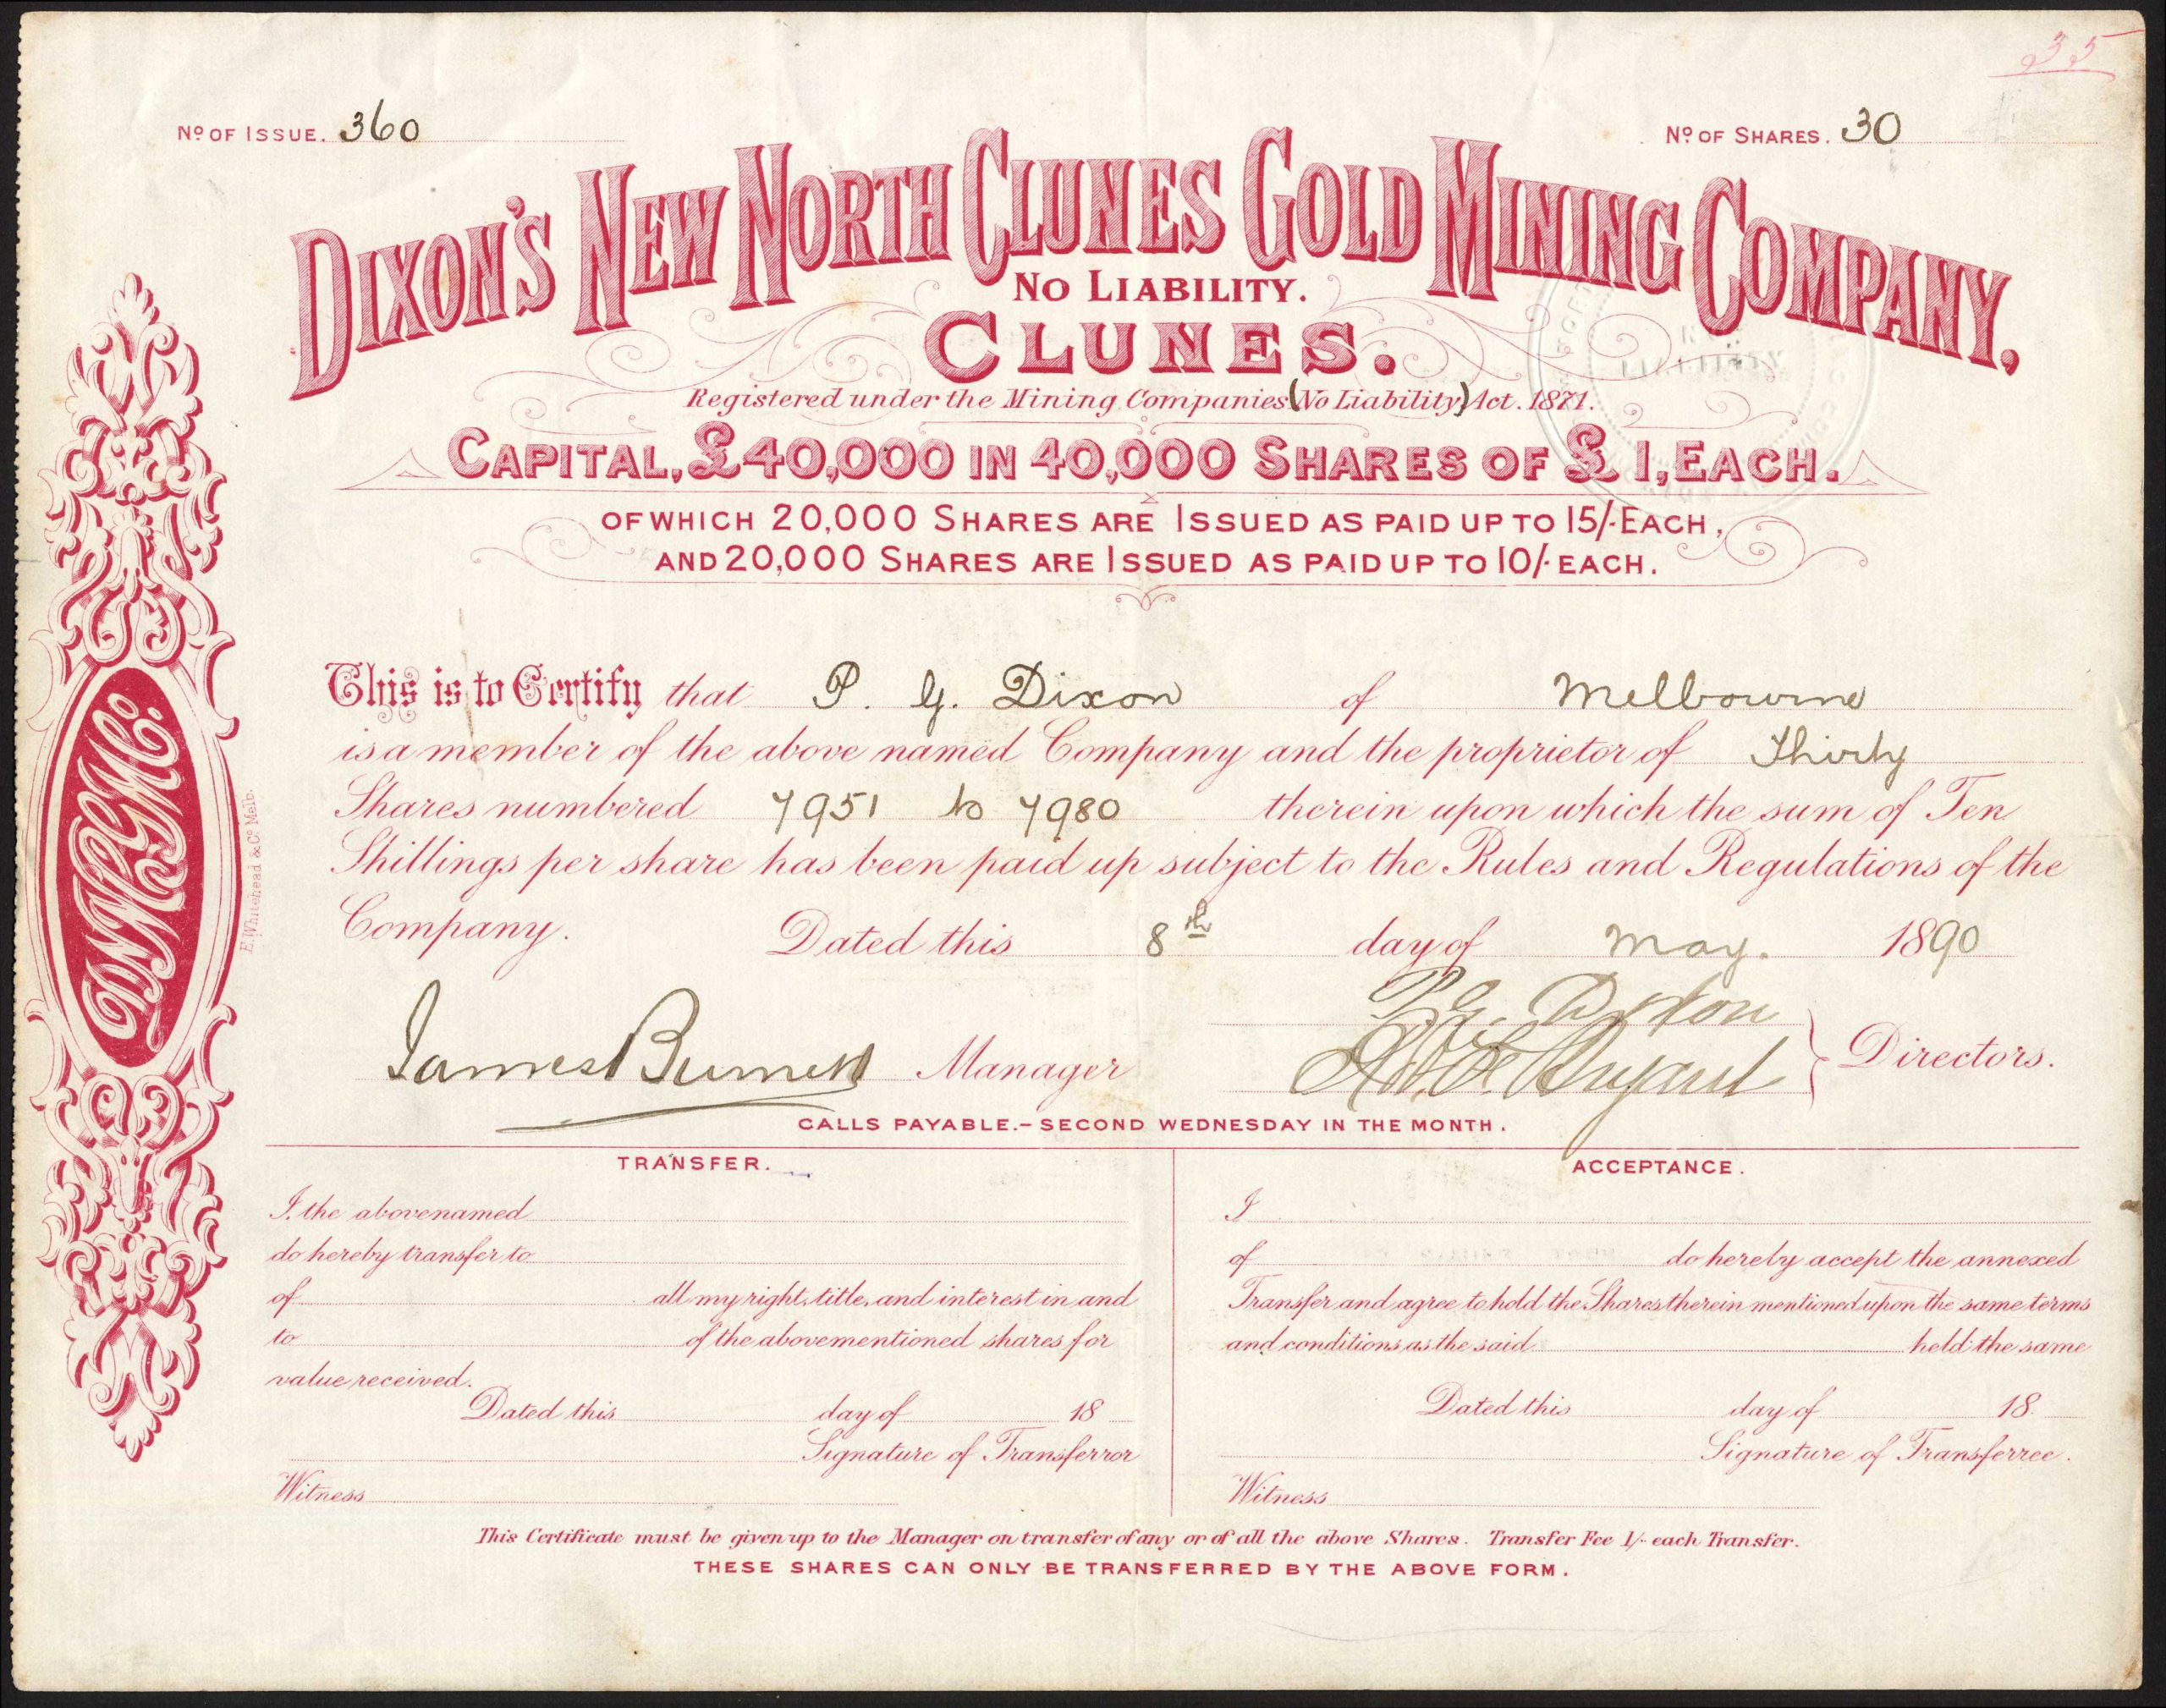 35
No OF ISSUE. 360
No OF SHARES. 30
DIXON'S NEW NORTH CLUNES GOLD MINING COMPANY,
NO LIABILITY.
CLUNES.
Registered under the Mining Companies (No Liability) Act. 1871.
CAPITAL, £40,000 IN 40,000 SHARES OF £1, EACH.
OF WHICH 20,000 SHARES ARE ISSUED AS PAID UP TO 15/- EACH,
AND 20,000 SHARES ARE ISSUED AS PAID UP TO 10/- EACH.
This is to Certify that P. G. Dixon of Melbourne
is a member of the above named Company and the proprietor of Thirty
Shares numbered 7951 to 7980 therein upon which the sum of Ten
Shillings per share has been paid up subject to the Rules and Regulations of the
Company. Dated this 8th day of May. 1890
P. G. Dixon
James Burnett Manager
Directors.
CALLS PAYABLE.- SECOND WEDNESDAY IN THE MONTH.
TRANSFER.
I, the abovenamed
do hereby transfer to
of all my right, title, and interest in and
to of the abovementioned shares for
value received.
Dated this day of 18
Signature of Transferror
Witness
ACCEPTANCE.
I
of do hereby accept the annexed
Transfer and agree to hold the Shares therein mentioned upon the same terms
and conditions as the said held the same
Dated this day of 18
Signature of Transferree.
Witness
This Certificate must be given up to the Manager on transfer of any or of all the above Shares. Transfer Fee 1/- each Transfer.
THESE SHARES CAN ONLY BE TRANSFERRED BY THE ABOVE FORM.
DNNCGMCo.
E. Whitehead & Co. Melb.
NO
LIABILITY